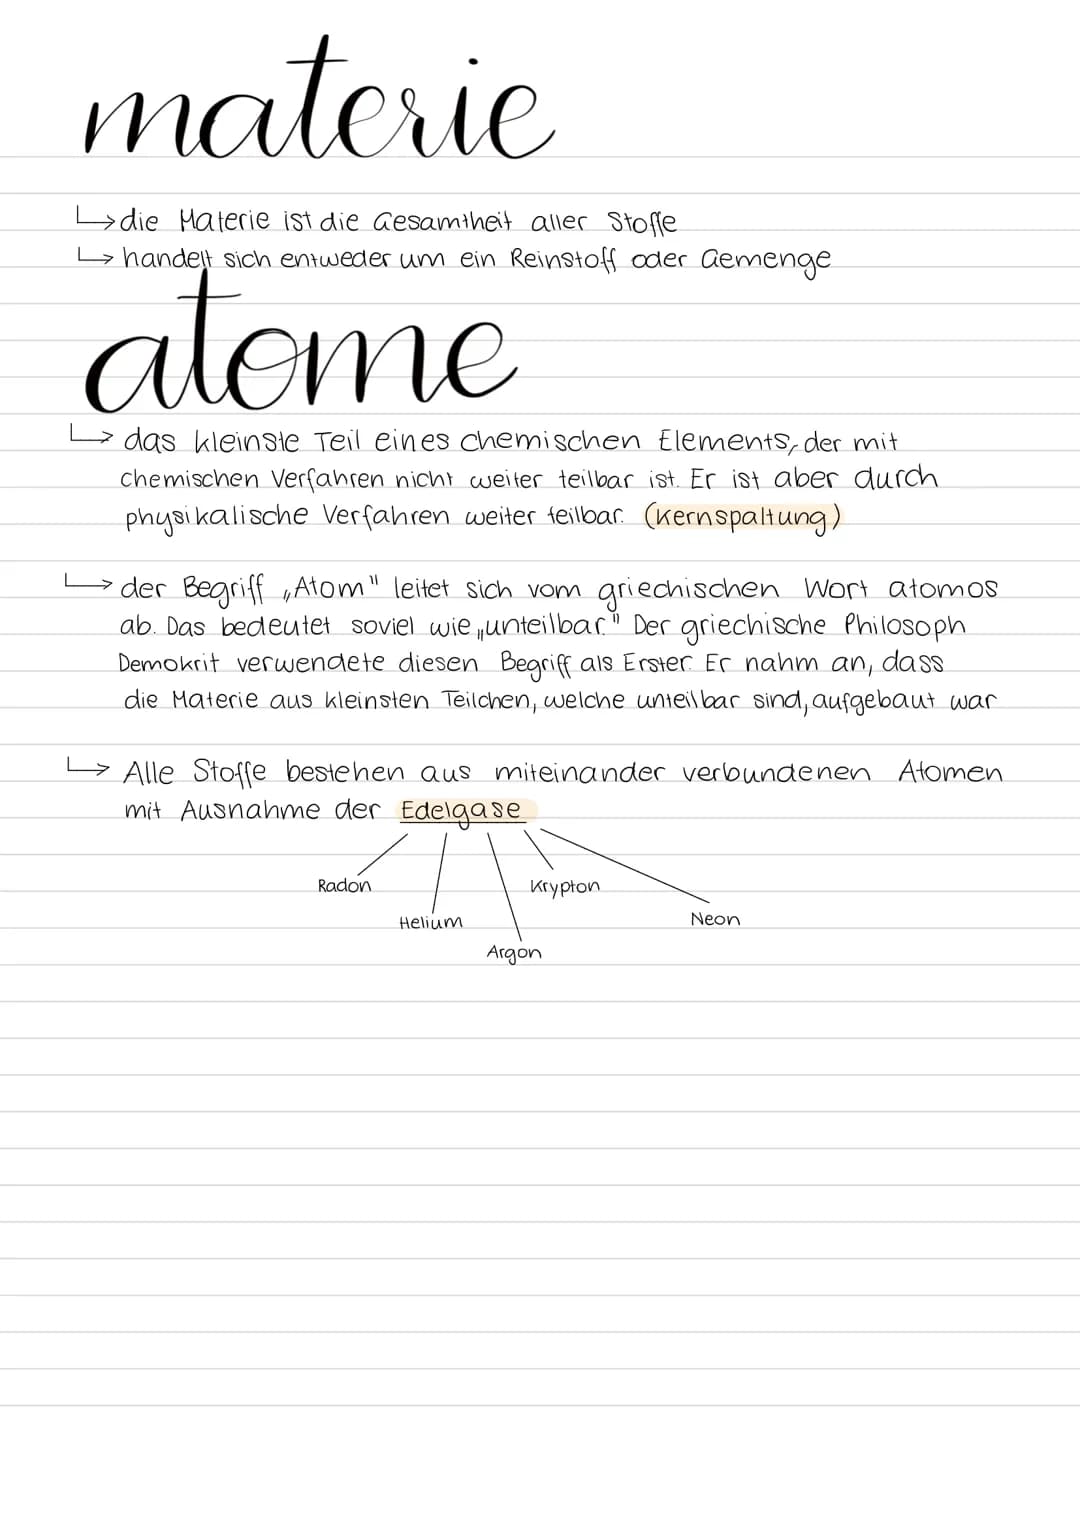 materie
↳ die Materie ist die Gesamtheit aller Stoffe
↳ handelt sich entweder um ein Reinstoff oder Gemenge
atome
↳ das kleinste Teil eines chemischen Elements, der mit
chemischen Verfahren nicht weiter teilbar ist. Er ist aber durch
physikalische Verfahren weiter teilbar. (Kernspaltung)
↳ der Begriff „Atom" leitet sich vom griechischen Wort atomos
ab. Das bedeutet soviel wie „unteilbar." Der griechische Philosoph
Demokrit verwendete diesen Begriff als Erster. Er nahm an, dass
die Materie aus kleinsten Teilchen, welche unteilbar sind, aufgebaut war
↳ Alle Stoffe bestehen aus miteinander verbundenen Atomen
mit Ausnahme der Edelgase
Radon Krypton
Helium Neon
Argon